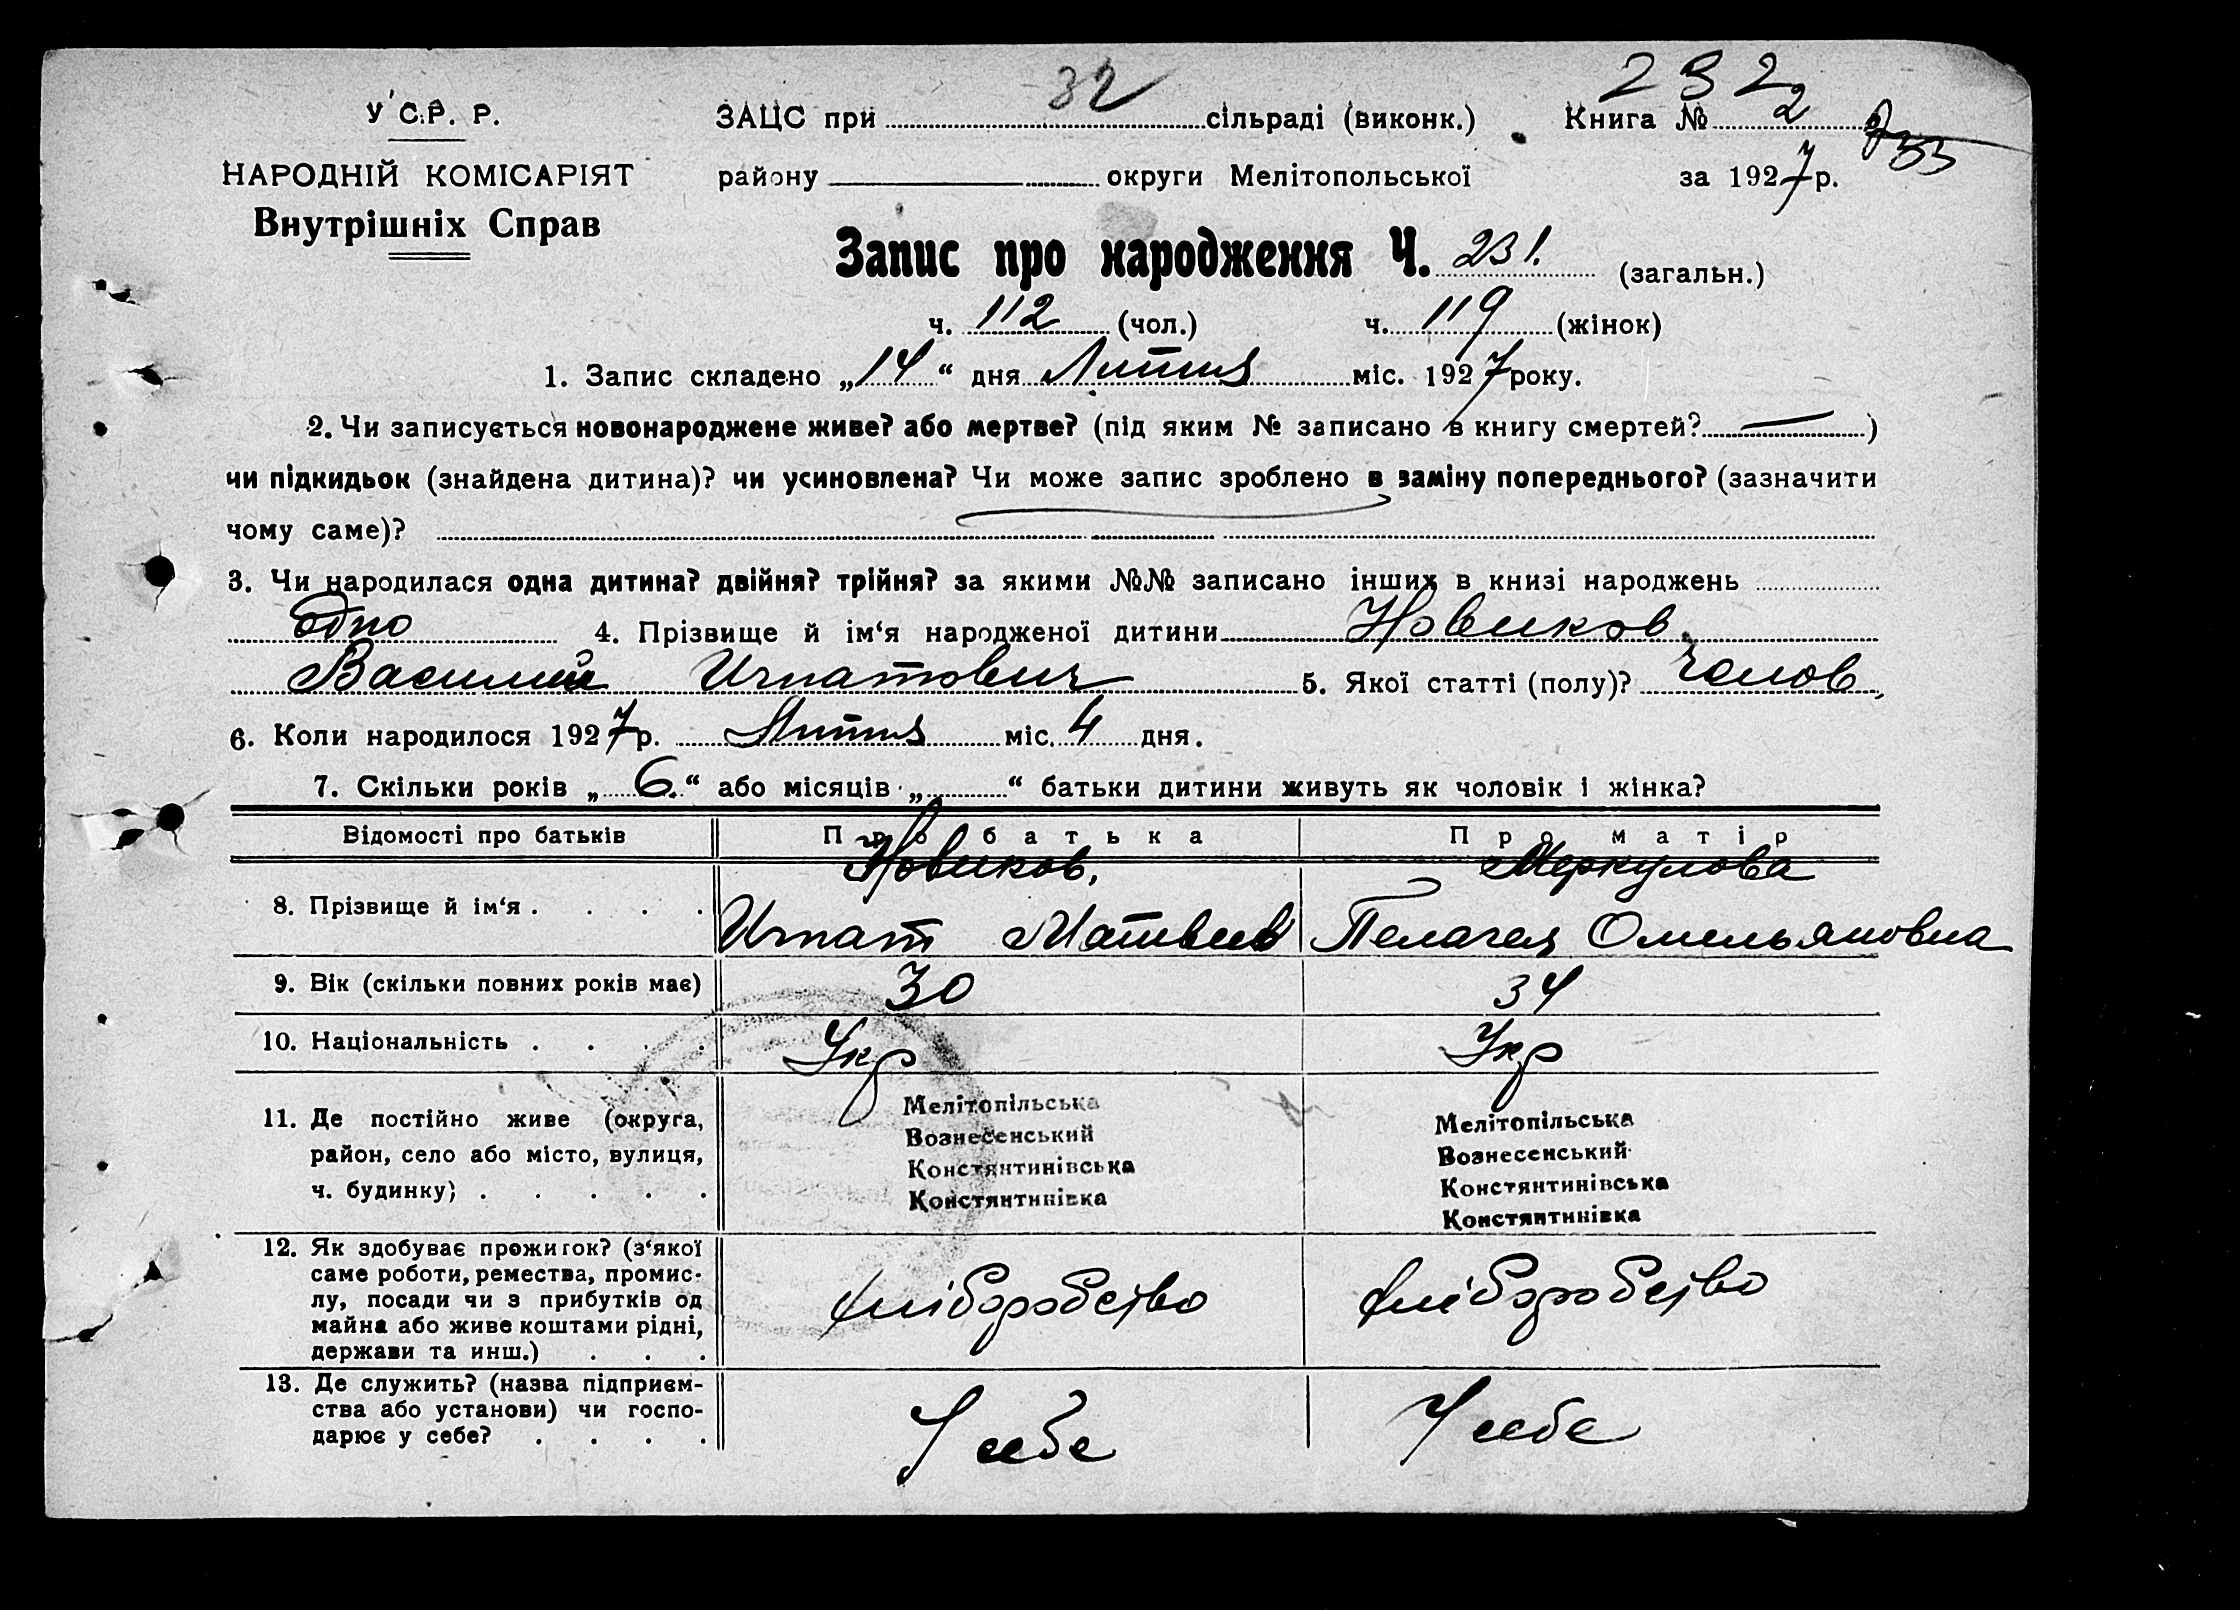 32
232
У С.Р. Р.
ЗАЦС при сільраді (виконк.) Книга № 2
НАРОДНІЙ КОМІСАРІЯТ
району округи Мелітопольської за 1927 р.
Внутрішніх Справ
Запис про народження Ч. 231. (загальн.)
ч. 112 (чол.) ч. 119 (жінок)
1. Запис складено „14“ дня Липня міс. 1927 року.
2. Чи записується новонароджене живе? або мертве? (під яким № записано в книгу смертей? — )
чи підкидьок (знайдена дитина)? чи усиновлена? Чи може запис зроблено в заміну попереднього? (зазначити
чому саме)?
3. Чи народилася одна дитина? двійня? трійня? за якими №№ записано інших в книзі народжень
одно 4. Прізвище й ім‘я народженої дитини Новиков
Василий Игнатович 5. Якої статті (полу)? чолов
6. Коли народилося 1927 р. Липня міс. 4 дня.
7. Скільки років „6.“ або місяців „ “ батьки дитини живуть як чоловік і жінка?
Відомості про батьків Про батька Про матір
Новиков, Меркулова
8. Прізвище й ім‘я . . . . Игнат Матвеев Пелагея Омельяновна
9. Вік (скільки повних років має) 30 34
10. Національність . . . . Укр Укр
11. Де постійно живе (округа, Мелітопільська Мелітопільська
район, село або місто, вулиця, Вознесенський Вознесенський
ч. будинку) . . . . . Констянтинівська Констянтинівська
Констянтинівка Констянтинівка
12. Як здобуває прожиток? (з‘якої
саме роботи, ремества, промис-
лу, посади чи з прибутків од хліборобство хліборобство
майна або живе коштами рідні,
держави та инш.) . . .
13. Де служить? (назва підприєм-
ства або установи) чи госпо-
дарює у себе? . . . . У себе У себе